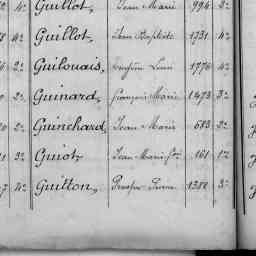 4e Guillot, Jean Marie 994 2e
4e Guillot, Jean Baptiste 1731 4e
2e Guilouais, Louis 1776 4e
2e Guinard, François Marie 1473 3e
2e Guinchard, Jean Marie 673 2e
3e Guiot, Jean Marie 161 1re
4e Guitton, Prosper Pierre 1388 3e